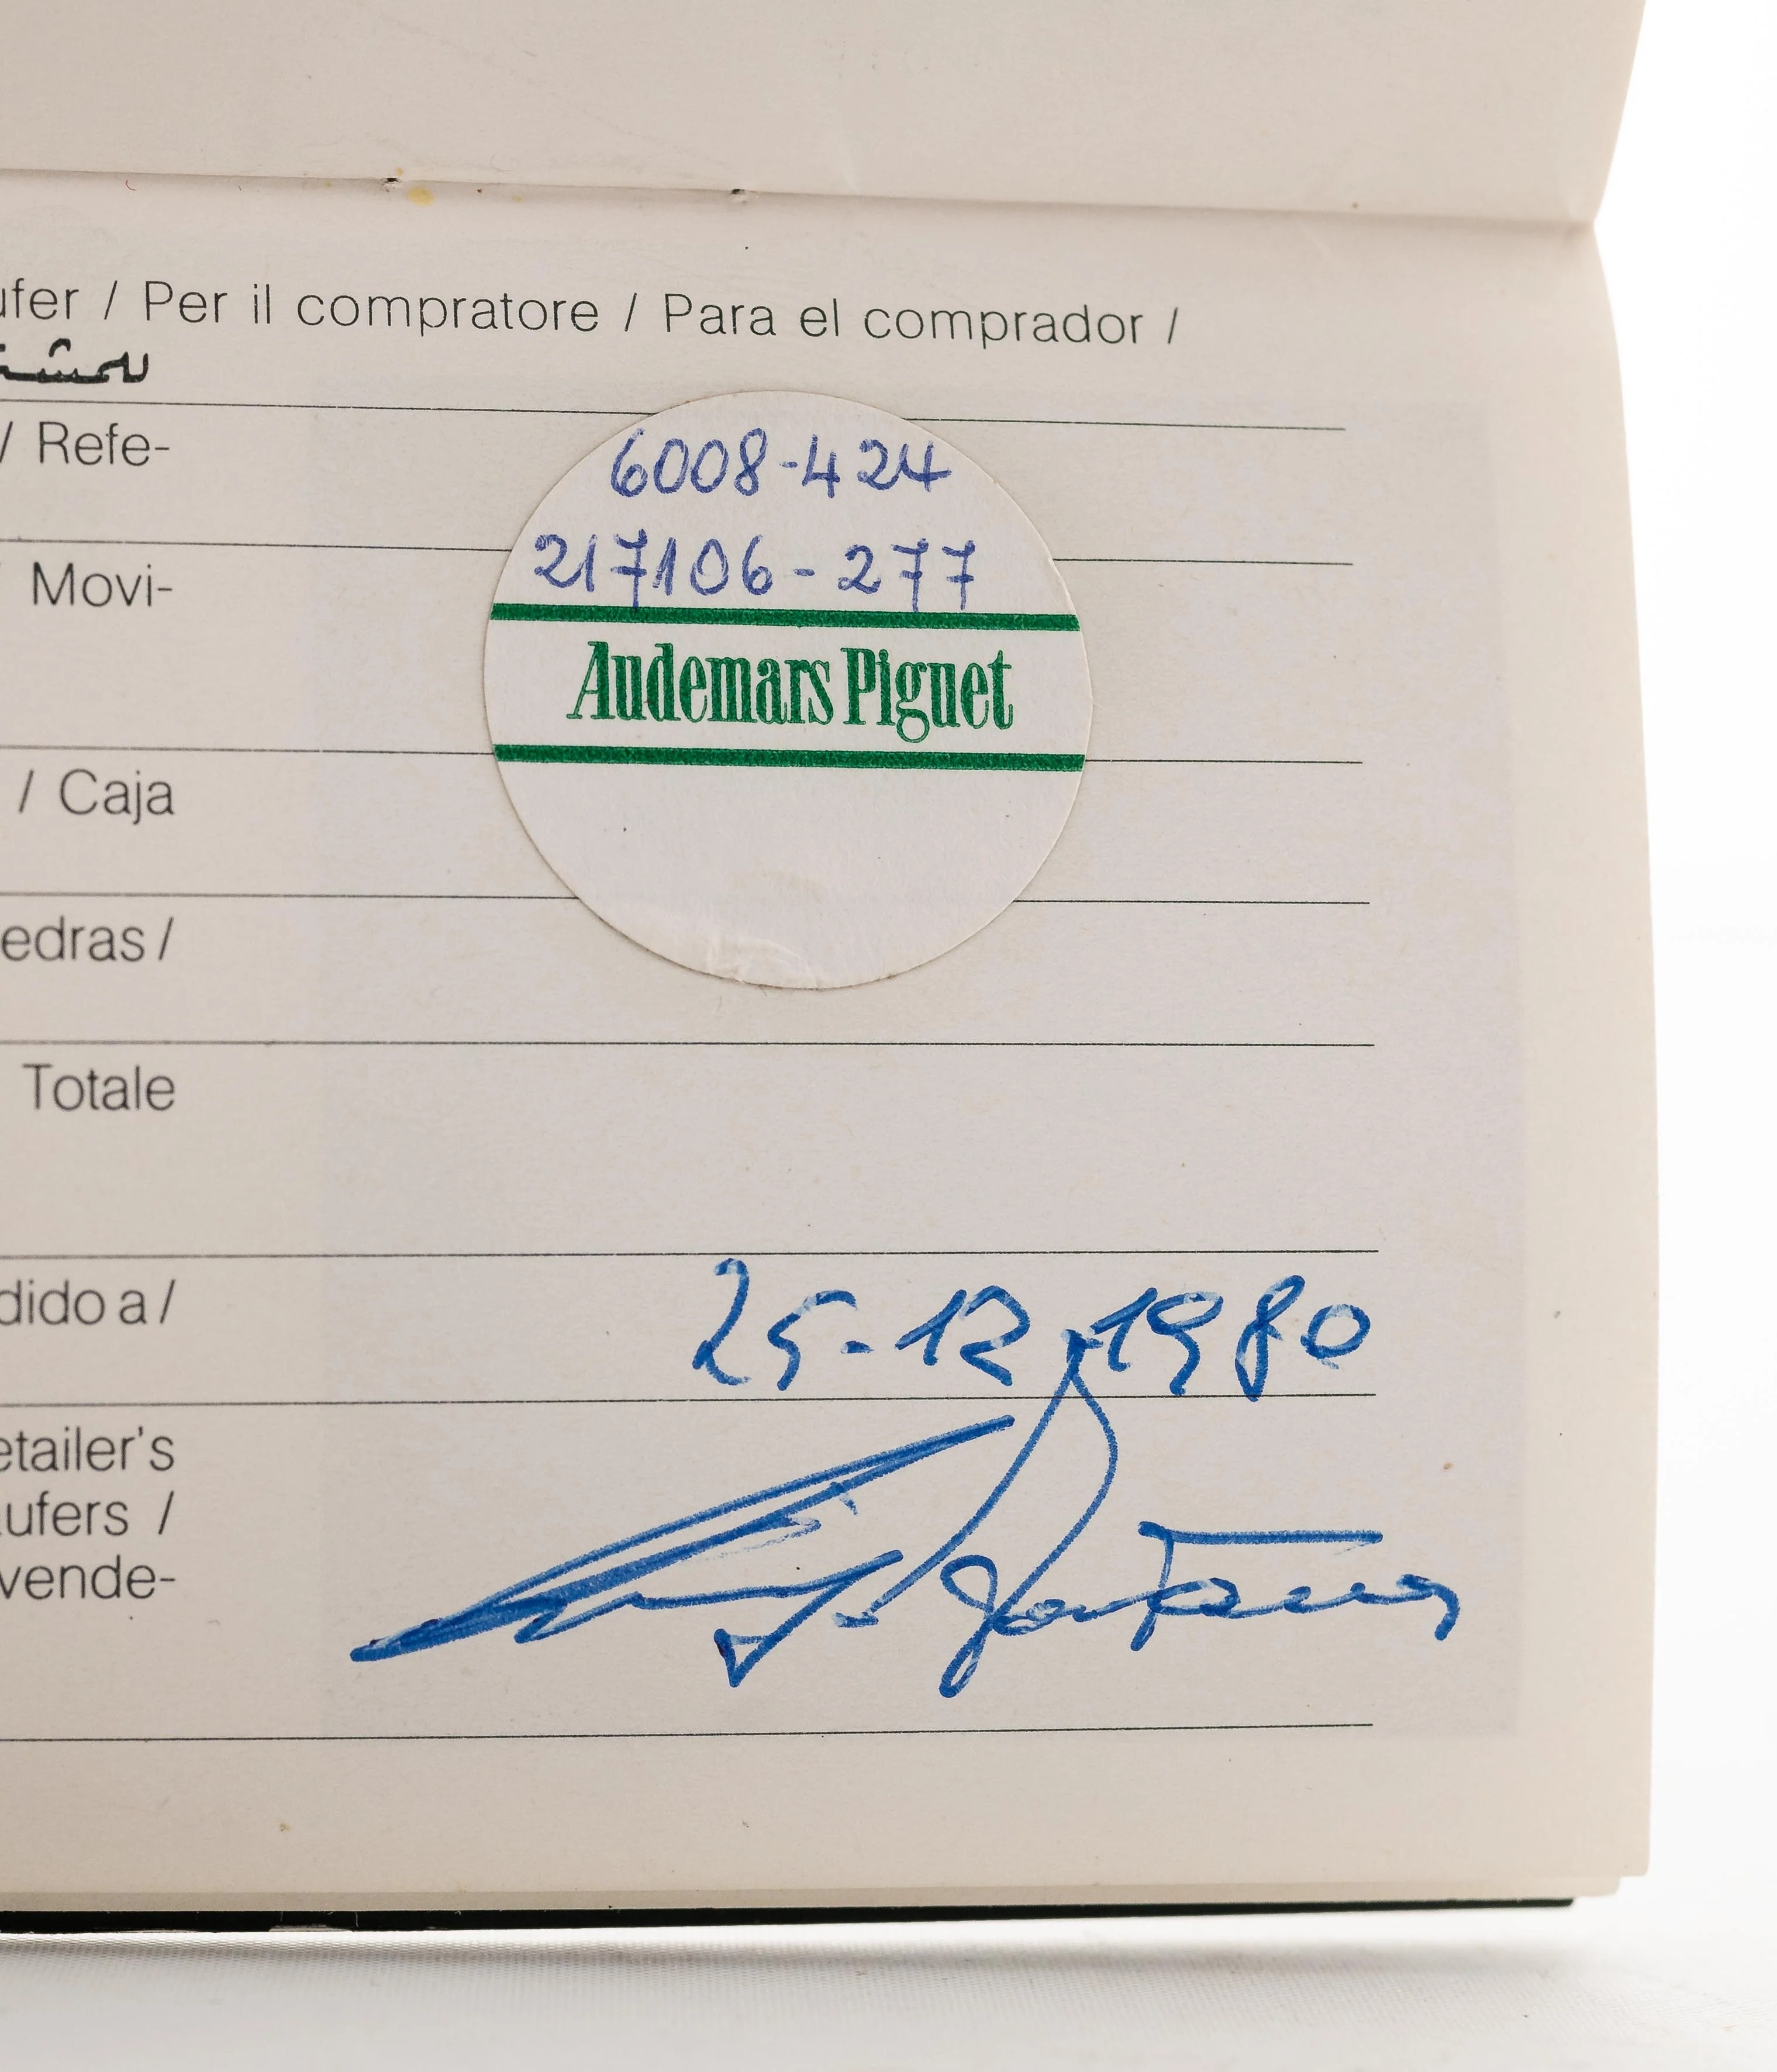 ufer / Per il compratore / Para el comprador /
/ Refe-
6008-424
Movi-
217106-277
Audemars Piguet
/ Caja
edras /
Totale
dido a /
25-12-1980
etailer's
ufers /
vende-